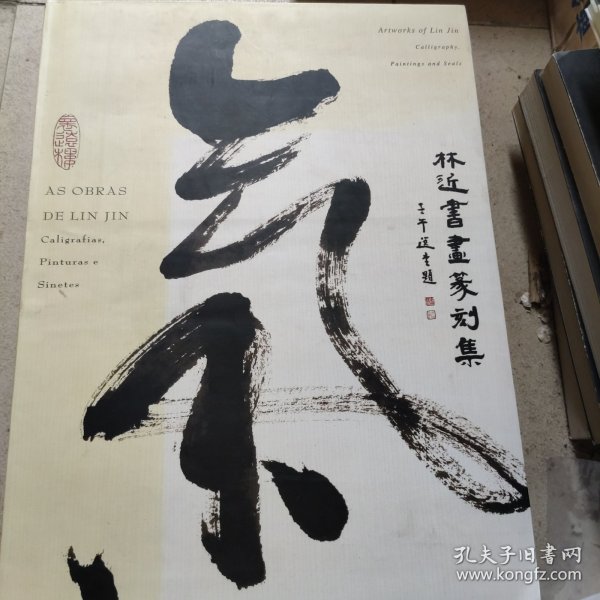 Artworks of Lin Jin
Calligraphy,
Paintings and Seals
AS OBRAS
DE LIN JIN
Caligrafias,
Pinturas e
Sinetes
林近書畫篆刻集
壬午選堂題
孔夫子旧书网
www.kongfz.com